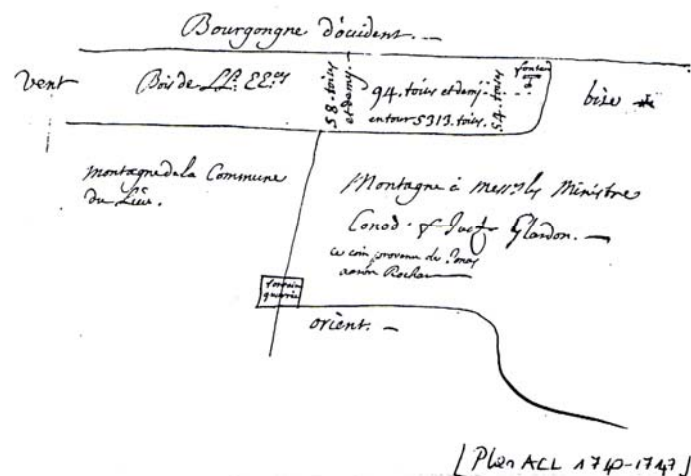 Bourgongne d'occident. —
vent
Bois de LL: EE:ces
58. toises
et demy.
94. toises et demy
en tour 5313. toises.
54. toises
fontene
bise
montagne de la Commune
du Lieu.
Montagne à mess:rs les Ministre
Conod. & Glardon. —
ce coin provenu de Jonas
Rochat
orient. —
[Plan ACL 1740-1747]